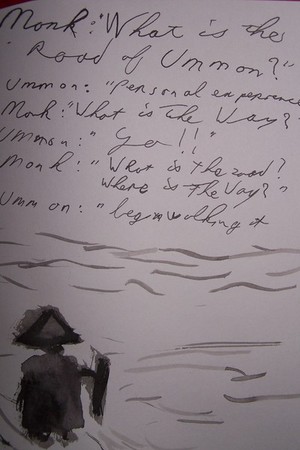 Monk: "What is the
Road of Ummon?"
Ummon: "Personal experience
Monk: "What is the Way?"
Ummon: " Go!!"
Monk: " What is the road?
Where is the Way?"
Ummon: "begin walking it